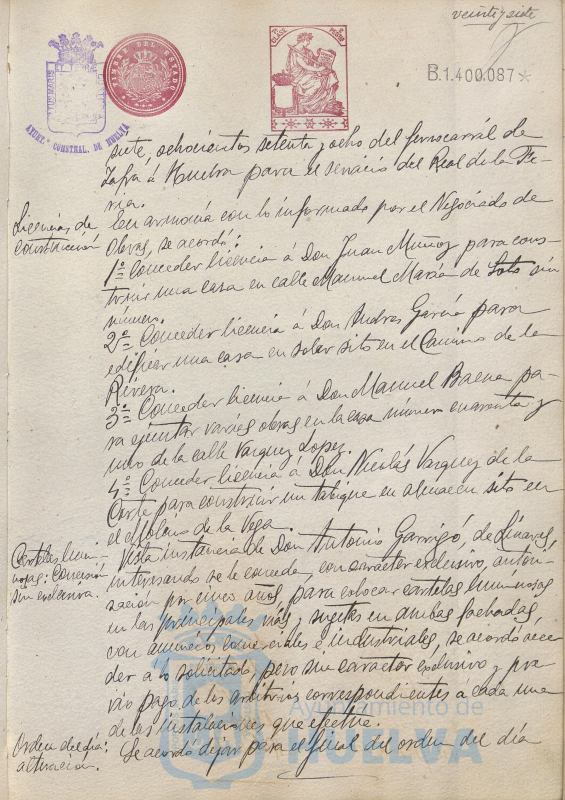 veinte y siete
B.1.400.087*
TIMBRE DEL ESTADO
AYUNT.º CONSTNAL. DE HUELVA
siete, ochocientos setenta y ocho del ferrocarril de
Zafra á Huelva para el servicio del Real de la Fe-
ria.
Licencias de
construcción
En armonía con lo informado por el Negociado de
Obras, se acordó:
1º= Conceder licencia á Don Juan Muñoz para cons-
truir una casa en calle Manuel María de Soto sin
número.
2º= Conceder licencia á Don Andres García para
edificar una casa en solar sito en el Camino de la
Rivera.
3º= Conceder licencia á Don Manuel Baena pa-
ra ejecutar varias obras en la casa número cuarenta y
uno de la calle Vazquez Lopez.
4º= Conceder licencia á Don Nicolás Vazquez de la
Corte para construir un tabique en almacen sito en
el Molino de la Vega.
Carteles lumi-
nosos: Concesión
sin exclusiva.
Vista instancia de Don Antonio Garrigó, de Linares,
interesando se le conceda, con carácter exclusivo, autori-
sación por cinco años para colocar carteles luminosos
en las principales vías y sujetos en ambas fachadas,
con anuncios comerciales e industriales, se acordó acce-
der a lo solicitado, pero sin caracter exclusivo y pre-
vio pago de los arbitrios correspondientes á cada una
de las instalaciones que efectúe.
Orden del día:
alteración.
Se acordó dejar para el final del orden del día
Ayuntamiento de
HUELVA